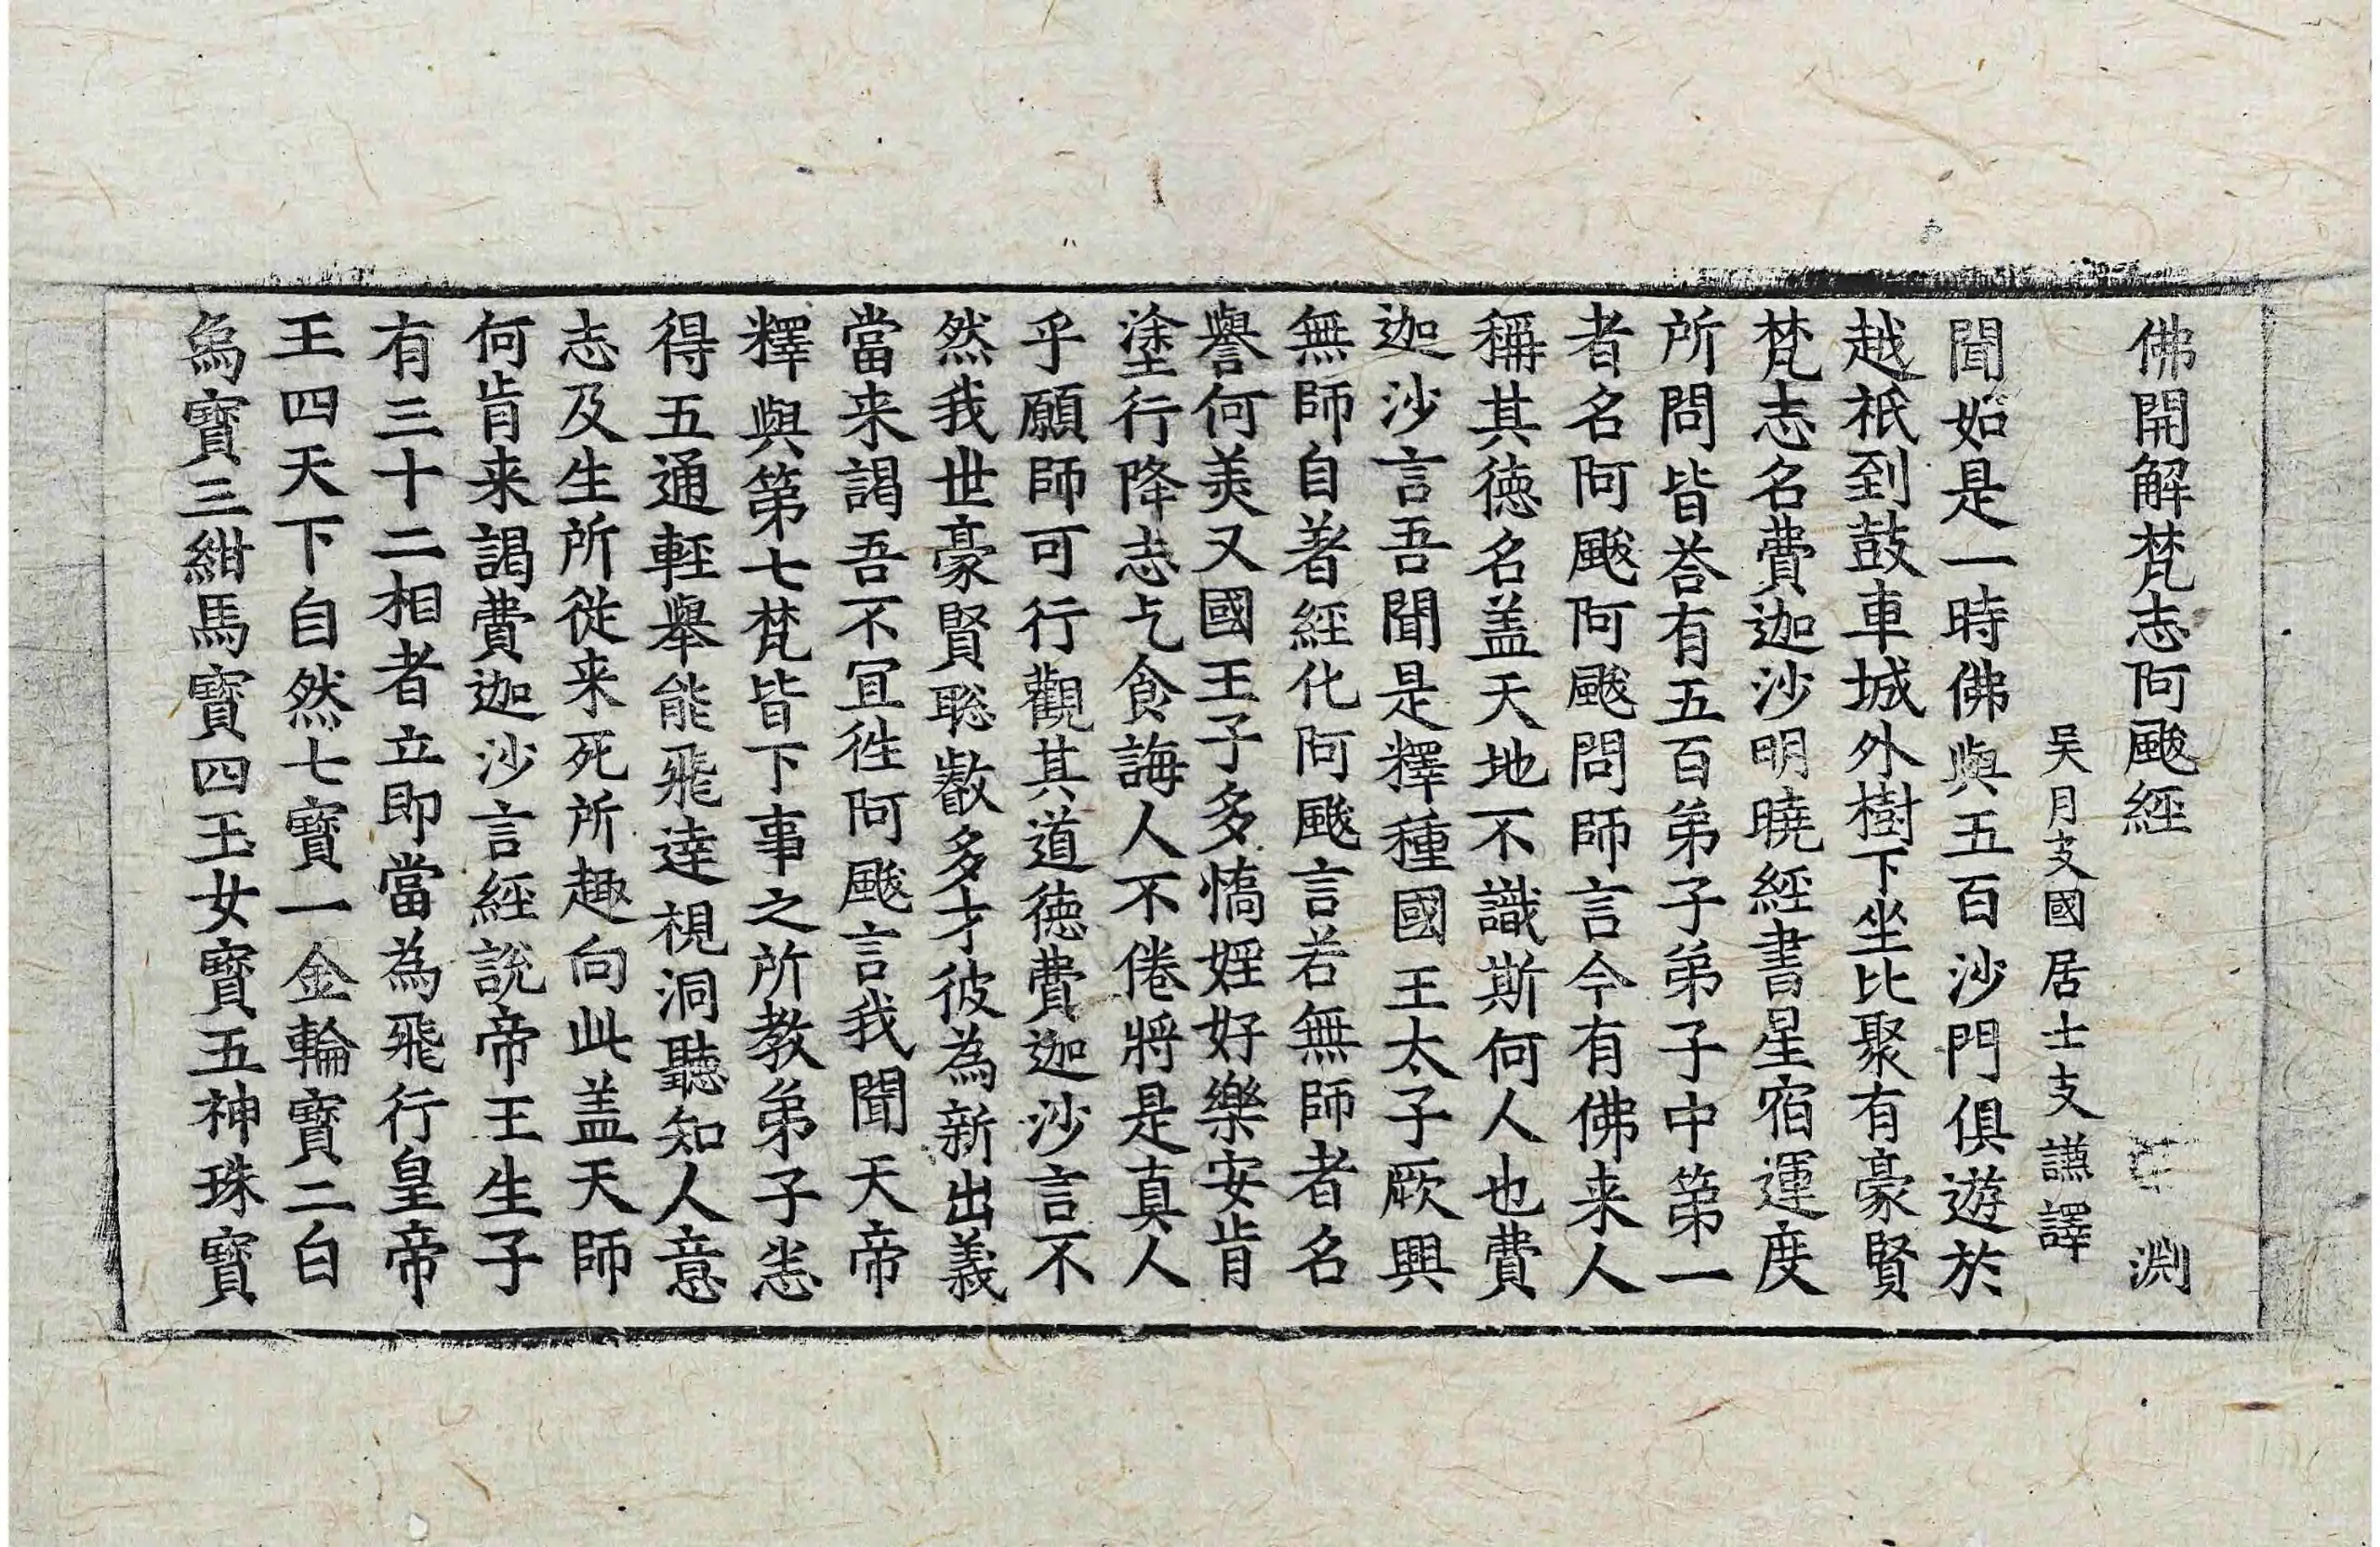 佛開解梵志阿颰經 淵
吴月支國居士支謙譯
聞如是一時佛與五百沙門俱遊於
越祇到鼓車城外樹下坐比聚有豪賢
梵志名費迦沙明曉經書星宿運度
所問皆荅有五百弟子弟子中第一
者名阿颰阿颰問師言今有佛来人
稱其徳名盖天地不識斯何人也費
迦沙言吾聞是釋種國王太子厥興
無師自著經化阿颰言若無師者名
譽何美又國王子多憍婬好樂安肯
塗行降志乞食誨人不倦將是真人
乎願師可行觀其道徳費迦沙言不
然我世豪賢聡叡多才彼為新出義
當来謁吾不冝徃阿颰言我聞天帝
釋與第七梵皆下事之所教弟子悉
得五通輕舉能飛達視洞聽知人意
志及生所從来死所趣向此盖天師
何肯来謁費迦沙言經說帝王生子
有三十二相者立即當為飛行皇帝
王四天下自然七寳一金輪寳二白
象寳三紺馬寳四玉女寳五神珠寳